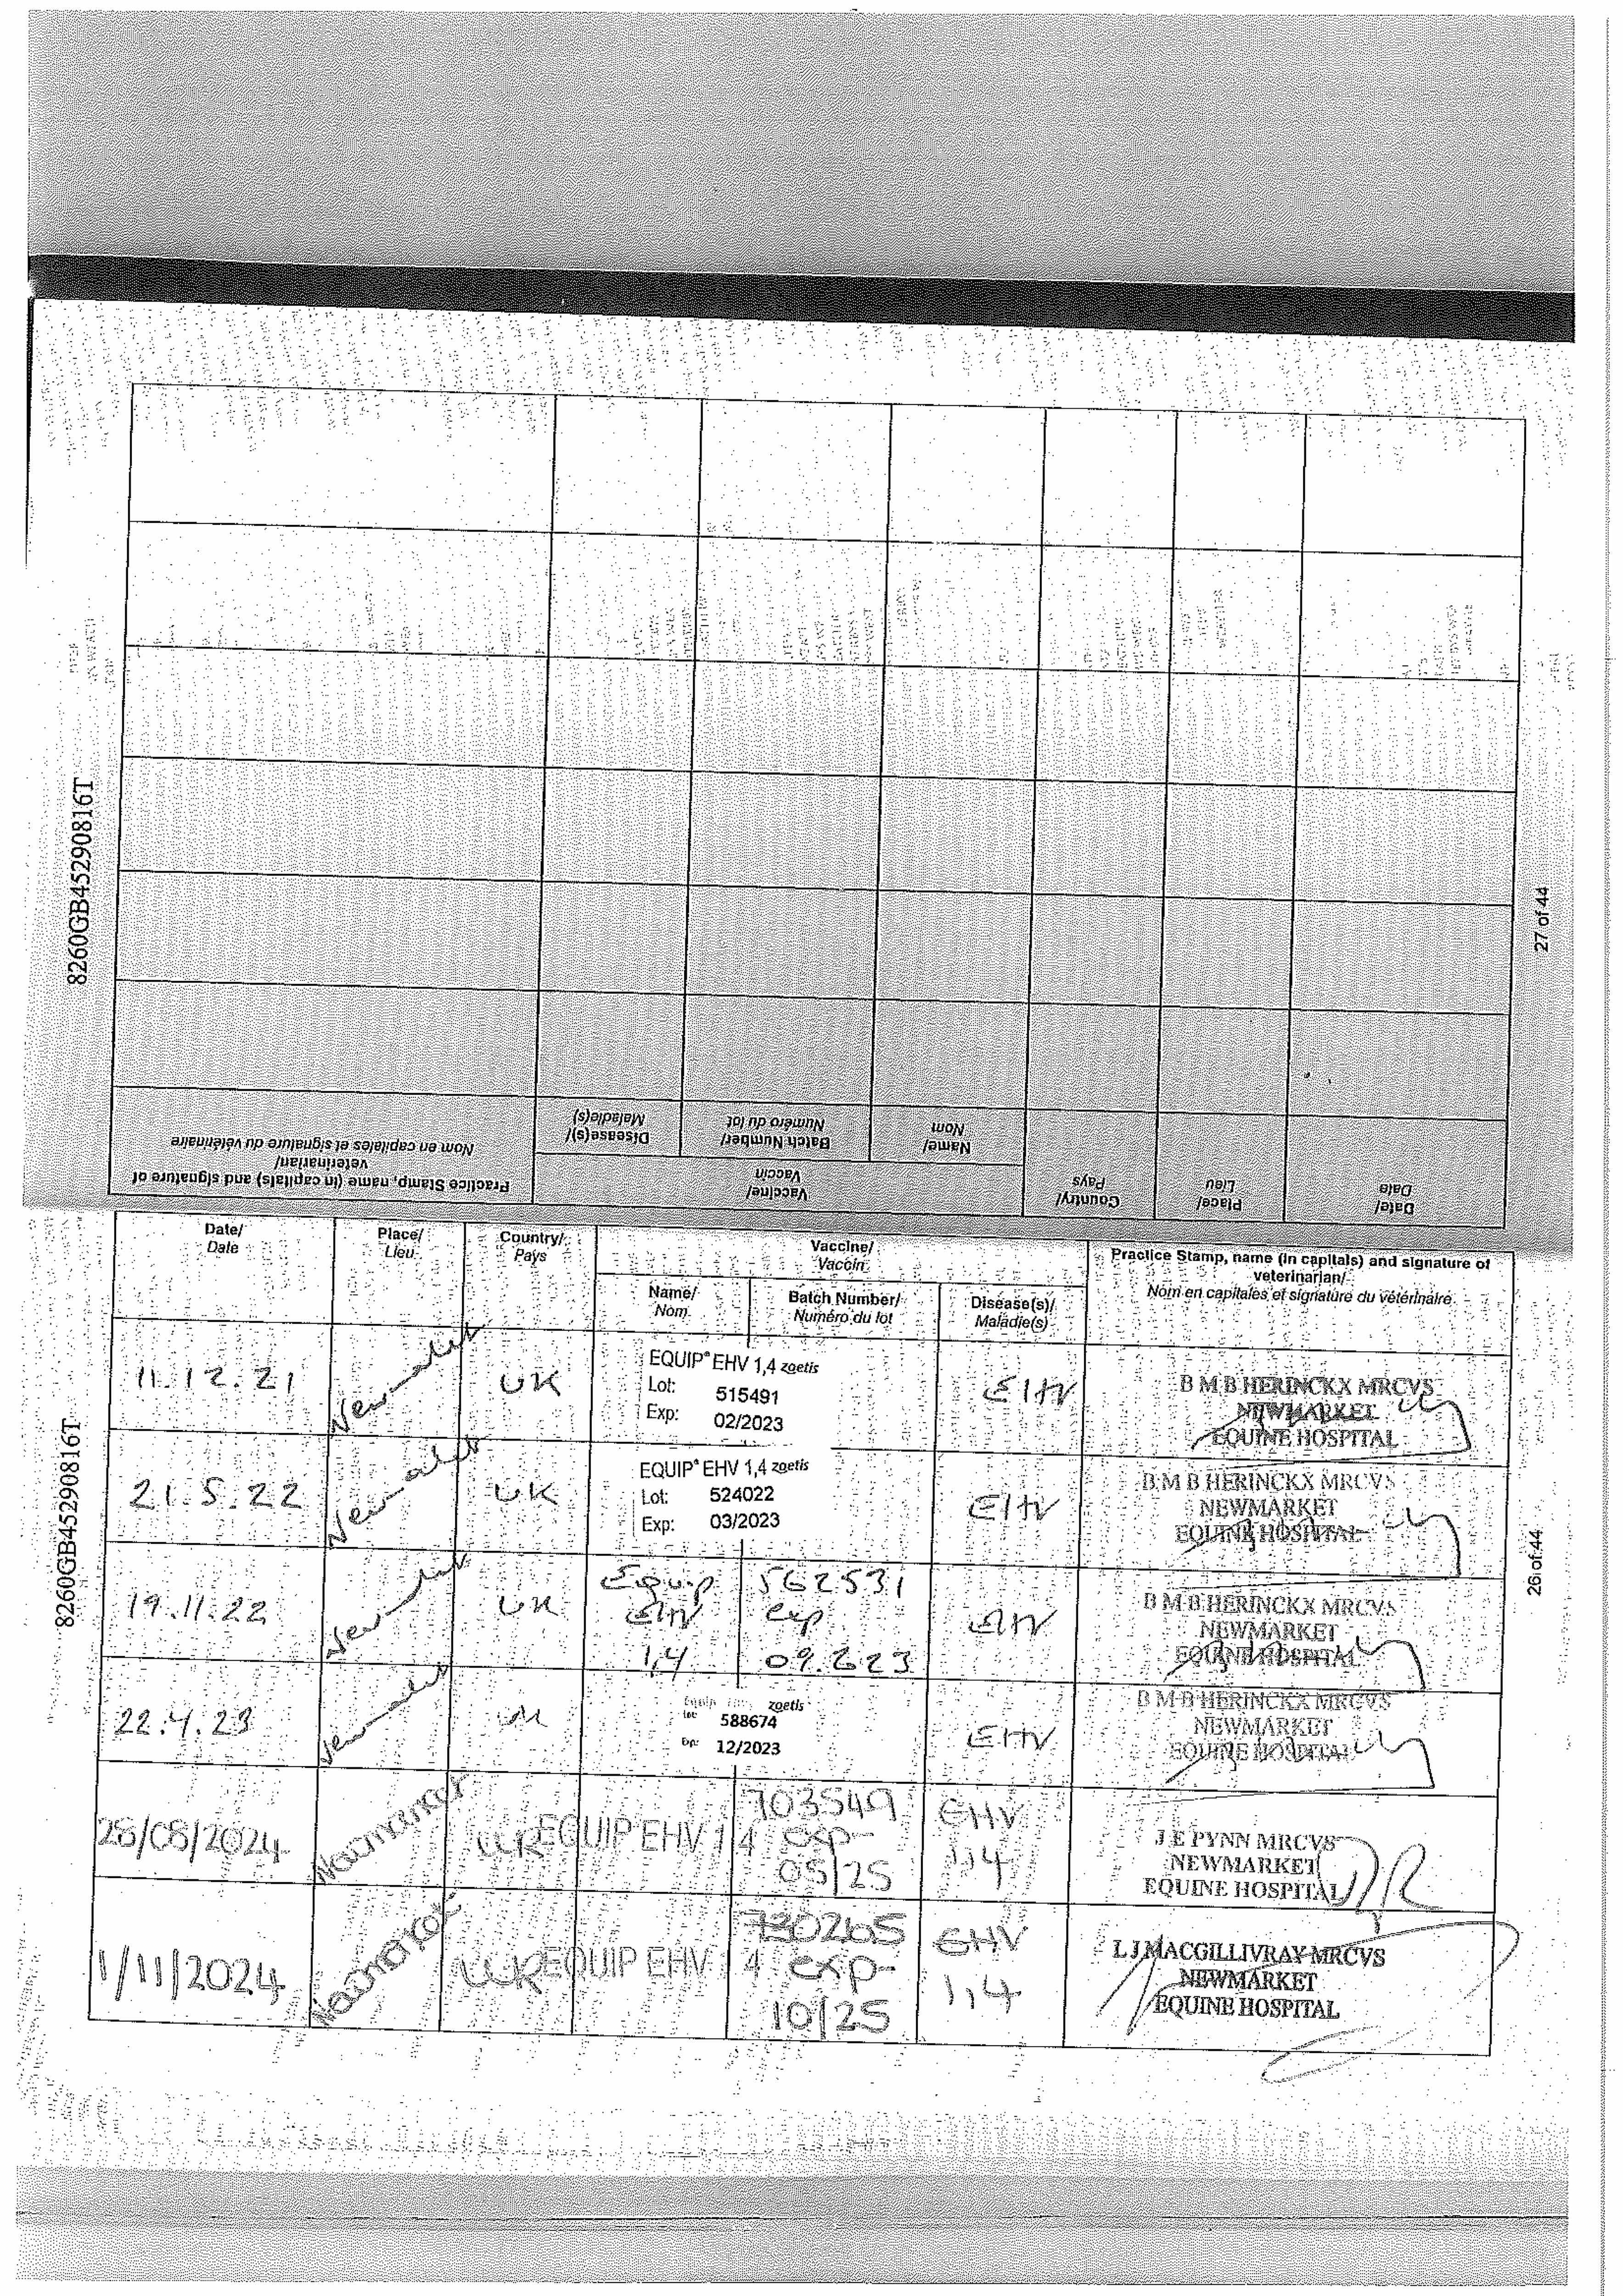 8260GB45290816T
27 of 44
Practice Stamp, name (in capitals) and signature of
veterinarian/
Nom en capitales et signature du vétérinaire
Vaccine/
Vaccin
Disease(s)/
Maladie(s)
Batch Number/
Numéro du lot
Name/
Nom
Country/
Pays
Place/
Lieu
Date/
Date
8260GB45290816T
26 of 44
Date/
Date
Place/
Lieu
Country/
Pays
Vaccine/
Vaccin
Name/
Nom
Batch Number/
Numéro du lot
Disease(s)/
Maladie(s)
Practice Stamp, name (in capitals) and signature of
veterinarian/
Nom en capitales et signature du vétérinaire
11.12.21
Newmarket
UK
EQUIP® EHV 1,4 zoetis
Lot: 515491
Exp: 02/2023
EHV
B M B HERINCKX MRCVS
NEWMARKET
EQUINE HOSPITAL
21.5.22
Newmarket
UK
EQUIP® EHV 1,4 zoetis
Lot: 524022
Exp: 03/2023
EHV
B M B HERINCKX MRCVS
NEWMARKET
EQUINE HOSPITAL
19.11.22
Newmarket
UK
Equip
EHV
1,4
562531
exp
09.2023
EHV
B M B HERINCKX MRCVS
NEWMARKET
EQUINE HOSPITAL
22.4.23
Newmarket
UK
Equip zoetis
Lot: 588674
Exp: 12/2023
EHV
B M B HERINCKX MRCVS
NEWMARKET
EQUINE HOSPITAL
Newmarket
UK
EQUIP EHV 1 4
703549
exp-
05/25
EHV
1,4
J E PYNN MRCVS
NEWMARKET
EQUINE HOSPITAL
1/11/2024
Newmarket
UK
EQUIP EHV 1 4
730265
exp-
10/25
EHV
1,4
L J MACGILLIVRAY MRCVS
NEWMARKET
EQUINE HOSPITAL